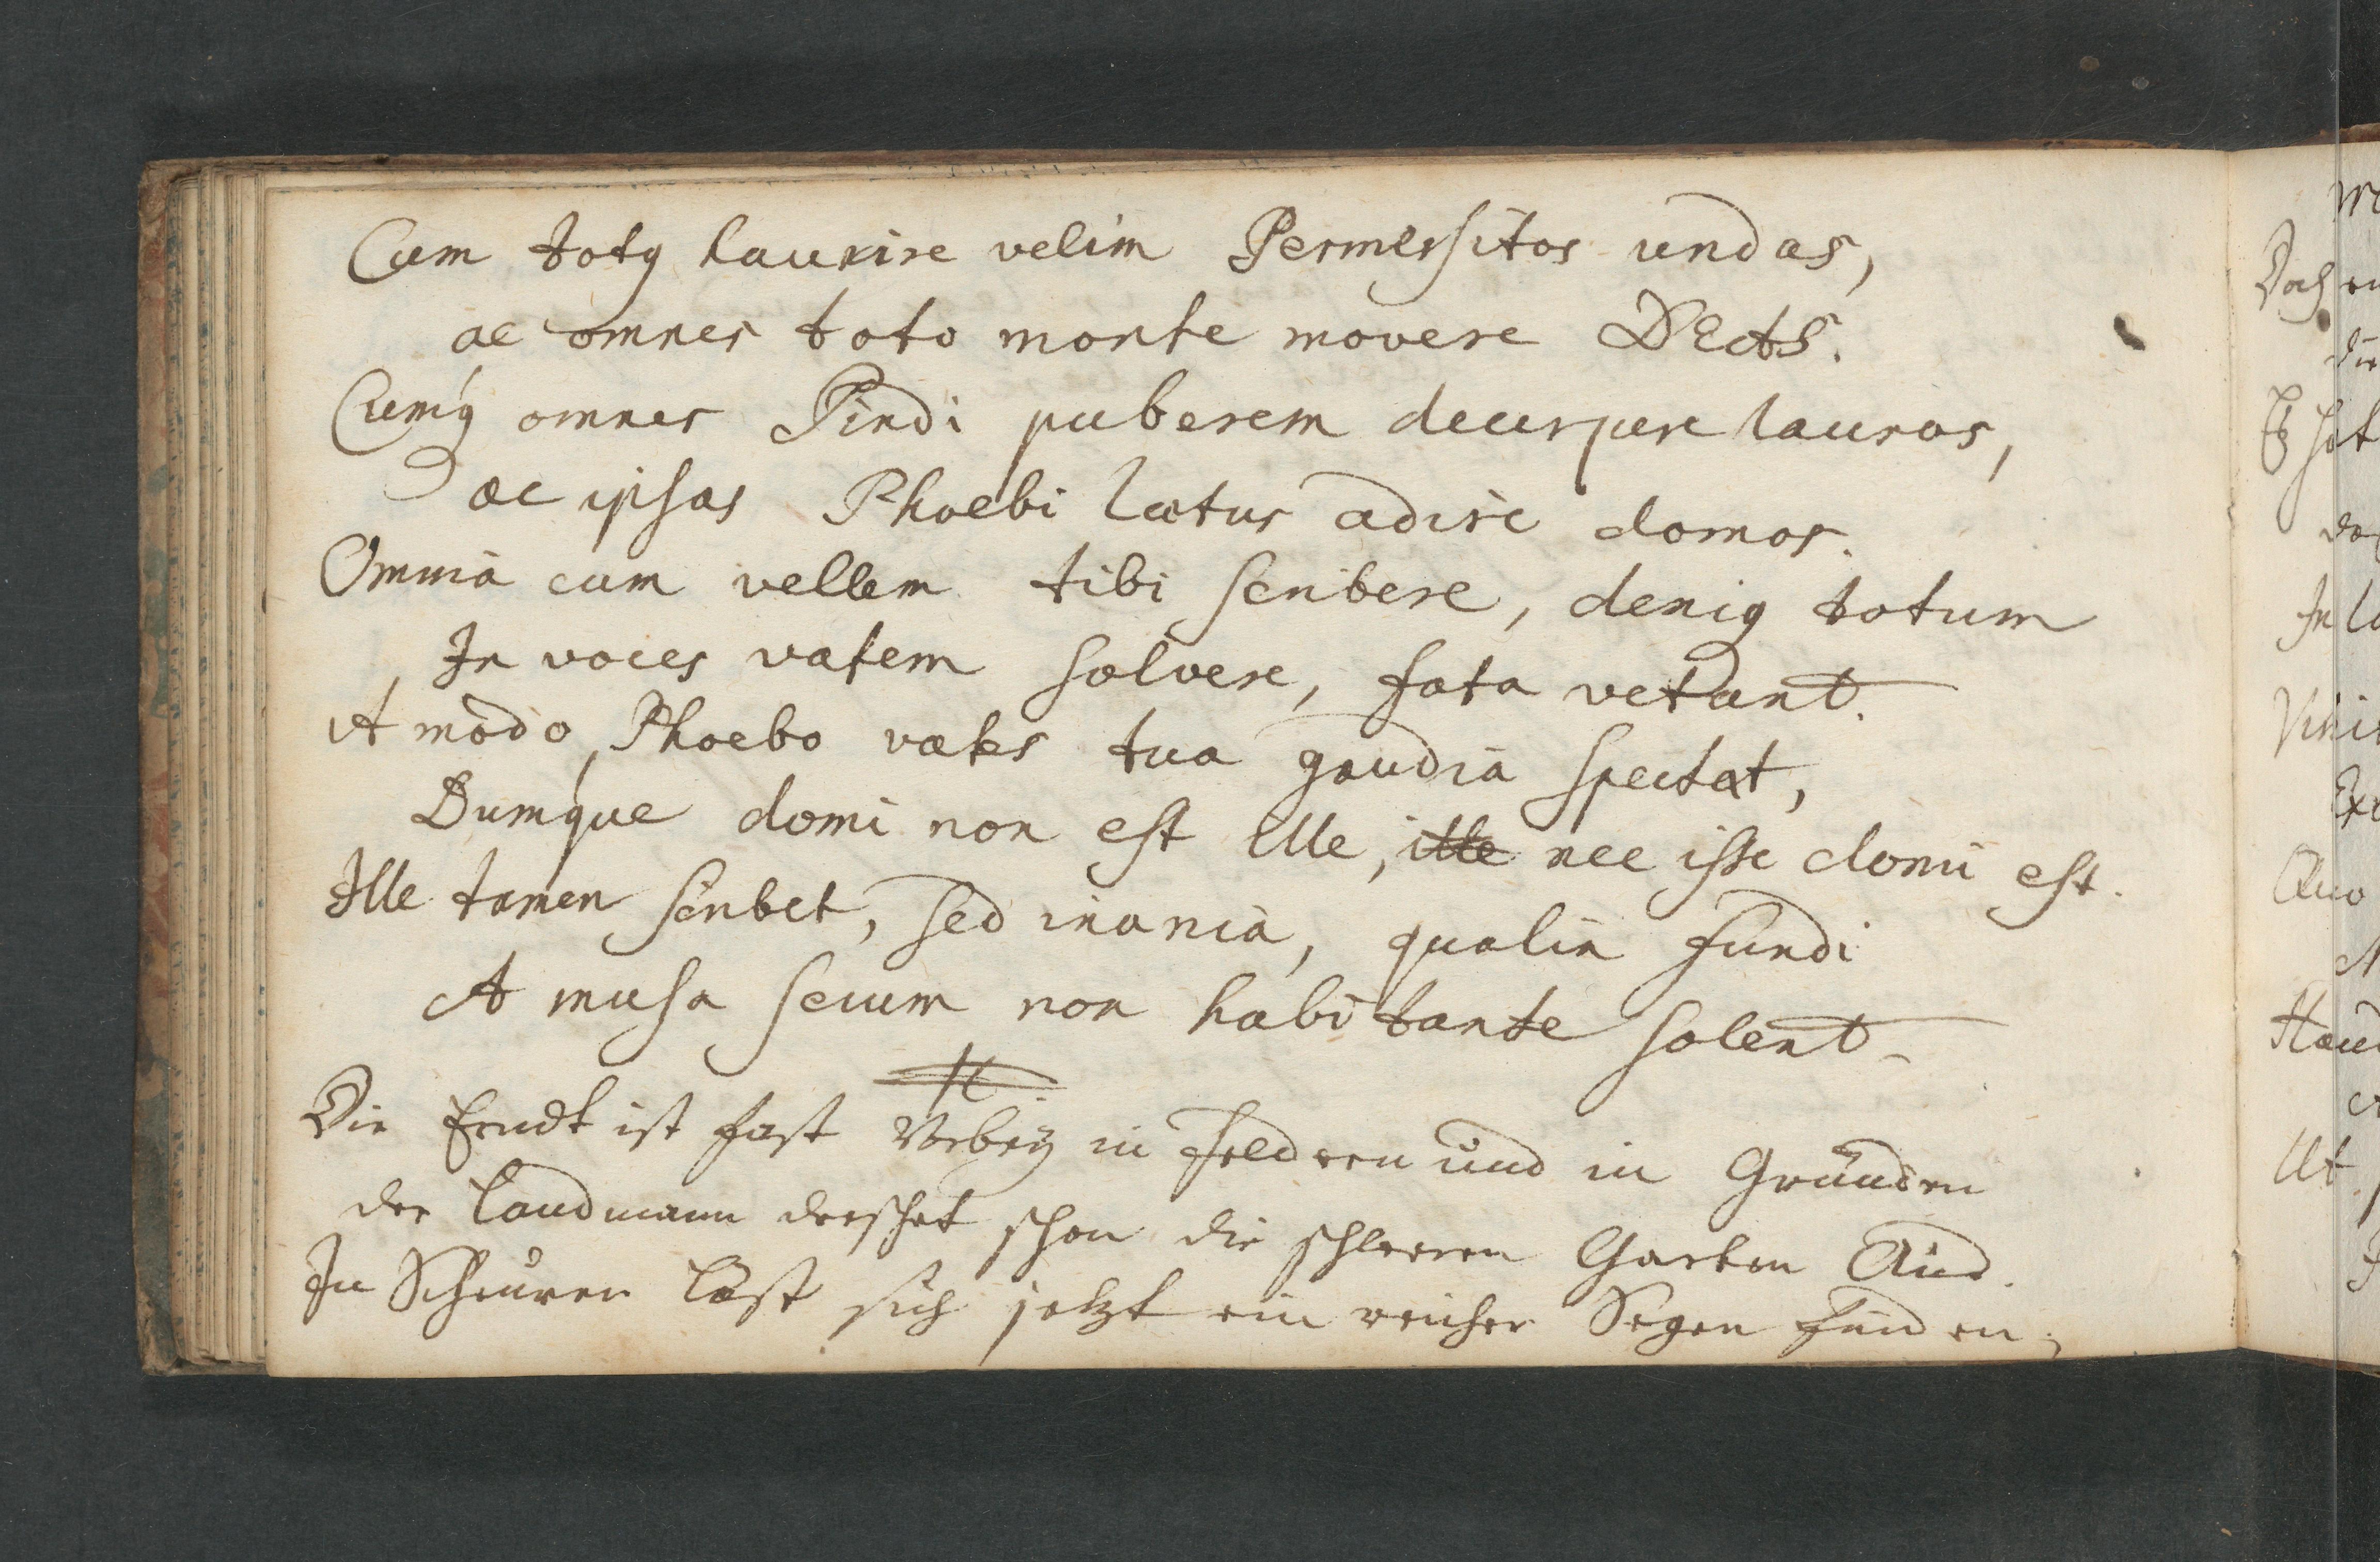 Cum totq haurire velim Permessitos undas,
ac omnes toto monte movere DEAS.
Cumq omnes Pindi puberem decerpere lauros,
ac ipsas Phoebi laetus adire domos.
Omnia cum vellem tibi scribere, deniq totum
In voces vatem solvere, fata vetant.
A modo Phoebo vates tua gaudia spectat,
Dumque domi non est ille, ille nec isse domi est.
Ille tamen scribet, sed inania, qualia fundi
A musa secum non habitante solent.
Die Erndt ist fast Vorbey in Feldern und in Gründen
der Landmann dreschet schon die Garben Aus.
In Scheuren läst sich jetzt ein reicher Segen finden;
Doch
Es hat
In